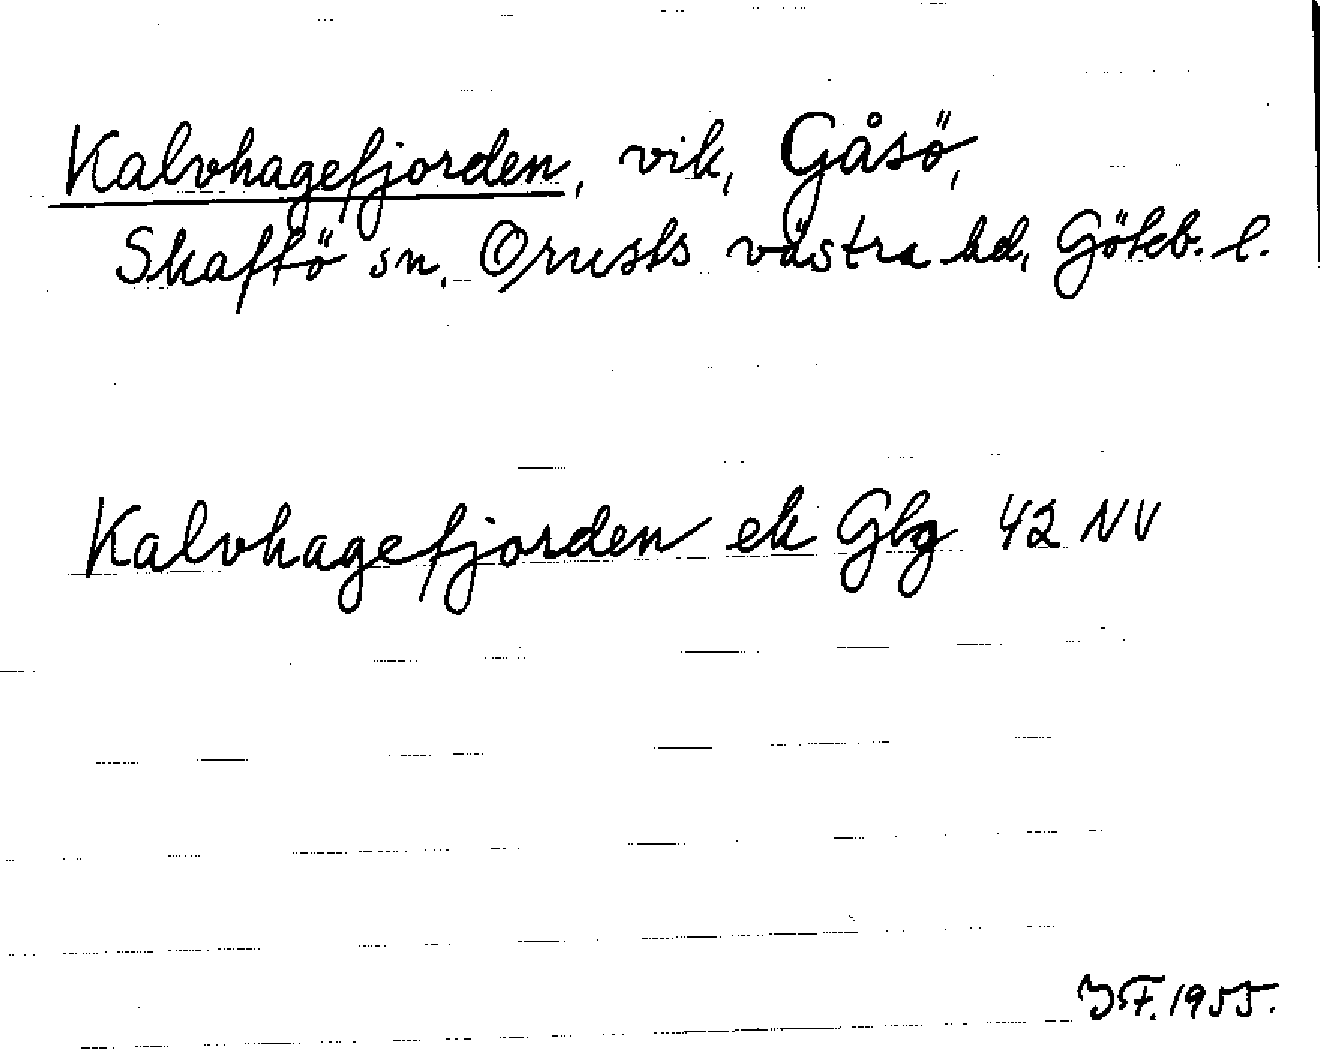 Kalvhagefjorden, vik, Gåsö,
Skaftö sn, Orusts västra hd, Göteb. l.
Kalvhagefjorden ek Gbg 42 NV
1955.